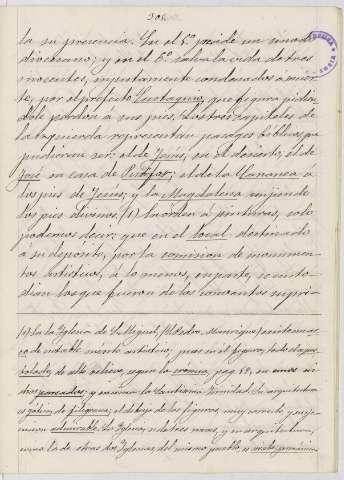 308
la su presencia. En el 5º preside un sinodo
diocesano; y en el 6º salva la vida de tres
inocentes, injustamente condenados á muer-
te, por el prefecto Eustaquio, que figura pidien
dole perdon a sus pies. Los tres capiteles de
la izquierda representan pasages bíblicos, que
pudieran ser: el de Jesús, en el desierto, el de
José en casa de Putifar; el de la Cananea á
los pies de Jesús; y la Magdalena unjiendo
los pies divinos (1) En orden á pinturas, solo
podemos decir; que en el local destinado
á su depósito, por la comision de monumen-
tos artísticos, á lo menos, en parte, se custo-
dian los que fueron de los conventos supri-
(1) En la Iglesia de S. Miguel,
de notable mérito artístico, pues en él figura, todo el apos
tolado, de alto relieve, segun la crónica, pag. 19, en
pareados; y encima la Santísima Trinidad. Su arquitectura
es gótica, de filigrana; el dibujo de las figuras, muy correcto y su eje-
cucion admirable. La Iglesia, es de tres naves, y su arquitectura,
como la de otras dos Iglesias del mismo pueblo, es